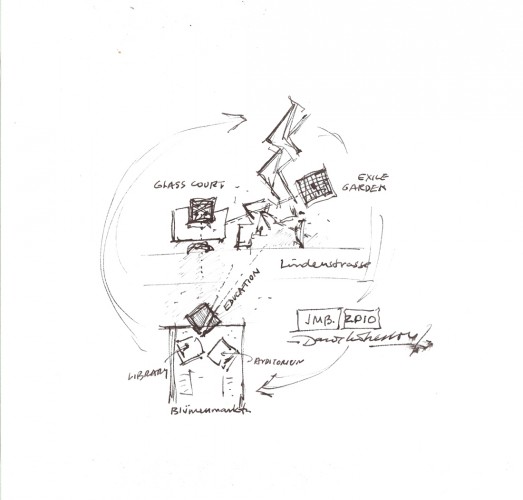 GLASS COURT
EXILE
GARDEN
Lindenstrasse
EDUCATION
JMB. 2010
LIBRARY
AUDITORIUM
Blumenmarkt